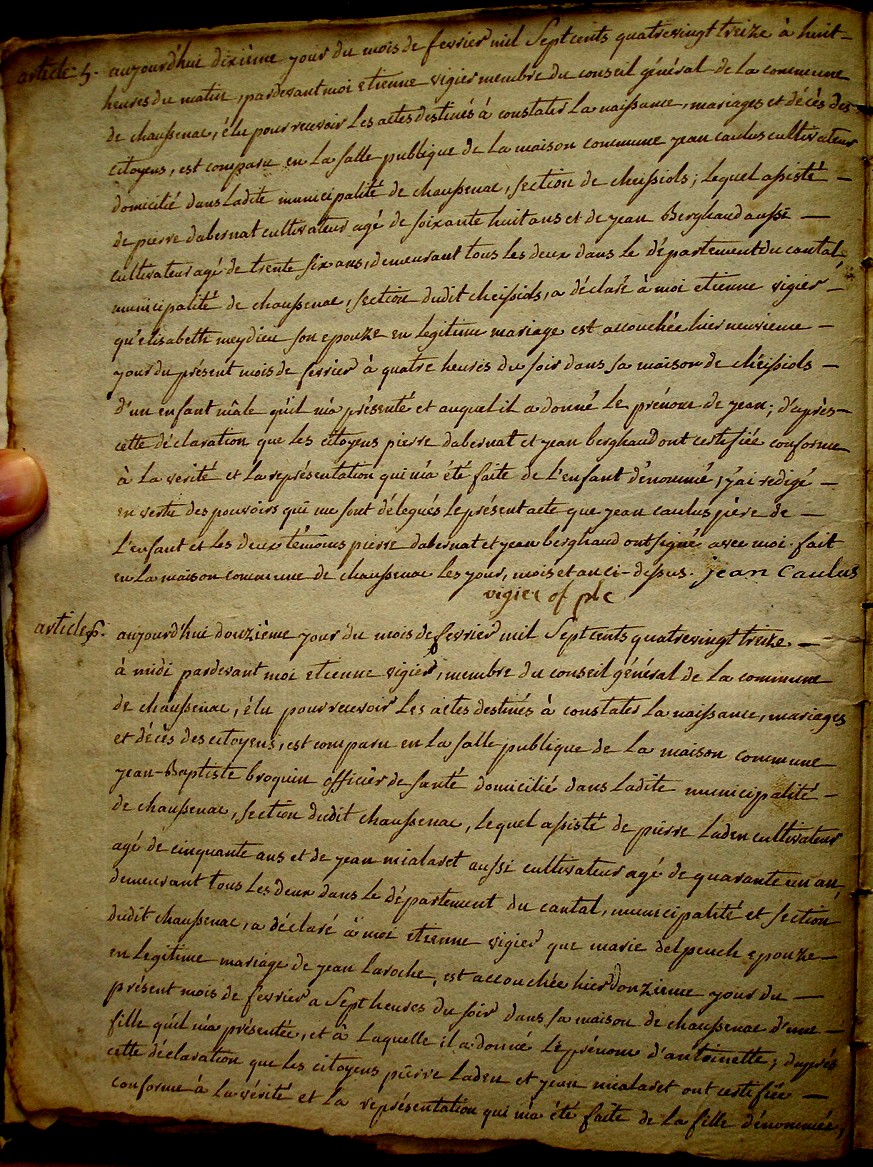 article 5. aujourd'hui dixième jour du mois de fevrier mil Sept cents quatrevingt treize à huit
heures du matin, pardevant moi etienne vigier membre du conseil général de la commune
de chaussenac, élu pour recevoir les actes destinés à constater la naissance, mariages et décès des
citoyens, est comparu en la salle publique de la maison commune jean caulus cultivateur
domicilié dans ladite municipalité de chaussenac, section de cheissiols; lequel assisté
de pierre dabernat cultivateur agé de soixante huit ans et de jean Berghaud aussi
cultivateur agé de trente six ans, demeurant tous les deux dans le département du cantal,
municipalité de chaussenac, section dudit cheissiols, a déclaré à moi etienne vigier
qu'elisabeth meydieu son epouze en légitime mariage est accouchée hier neuvieme
jour du présent mois de fevrier à quatre heures du soir dans sa maison de chéissiols
d'un enfant mâle qu'il m'a présenté et auquel il a donné le prénom de jean; d'après
cette déclaration que les citoyens pierre dabernat et jean berghaud ont certifiée conforme
à la verité et la représentation qui m'a été faite de l'enfant dénommé, j'ai redigé
en vertu des pouvoirs qui me sont délegués le présent acte que jean caulus père de
l'enfant et les deux témoins pierre dabernat et jean berghaud ont signé avec moi. fait
en la maison commune de chaussenac les jour, mois et an ci-dessus. jean Caulus
vigier of plc
article 6. aujourd'hui douzième jour du mois de fevrier mil Sept cents quatrevingt treize
à midi pardevant moi etienne vigier, membre du conseil général de la commune
de chaussenac, élu pour recevoir les actes destinés à constater la naissance, mariages
et décès des citoyens, est comparu en la salle publique de la maison commune
jean-Baptiste broquin officier de santé domicilié dans ladite municipalité
de chaussenac, section dudit chaussenac, lequel assisté de pierre Laden cultivateur
agé de cinquante ans et de jean mialaret aussi cultivateur agé de quarante un an,
demeurant tous les deux dans le département du cantal, municipalité et section
dudit chaussenac, a déclaré à moi etienne vigier que marie delpeuch epouze
en legitime mariage de jean Laroche, est accouchée hier donzieme jour du
présent mois de fevrier a Sept heures du soir dans sa maison de chaussenac d'une
fille qu'il m'a présentée, et à laquelle il a donné le prénom d'antoinette; d'après
cette déclaration que les citoyens pierre Laden et jean mialaret ont certifiée
conforme à la vérité et la représentation qui m'a été faite de la fille dénommée,